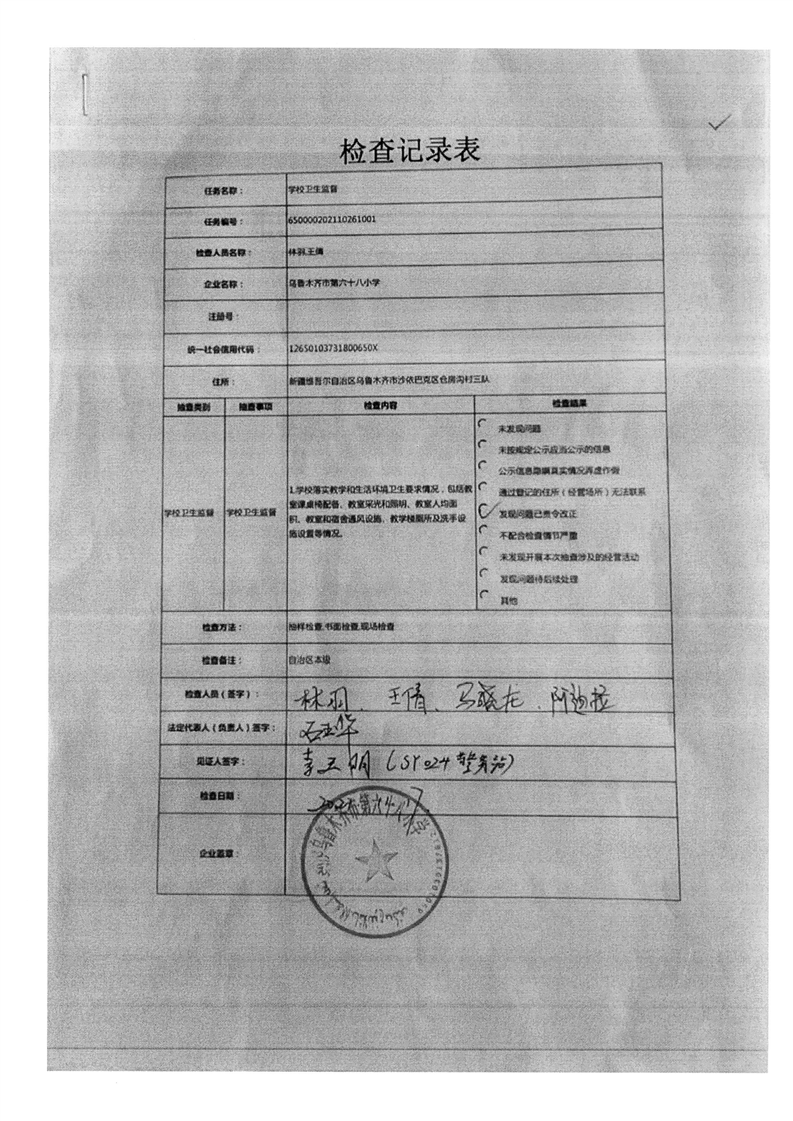 检查记录表
任务名称： 学校卫生监督
任务编号： 650000202110261001
检查人员名称： 林羽,王倩
企业名称： 乌鲁木齐市第六十八小学
注册号：
统一社会信用代码： 12650103731800650X
住所： 新疆维吾尔自治区乌鲁木齐市沙依巴克区仓房沟村三队
抽查类别 抽查事项 检查内容 检查结果
未发现问题
未按规定公示应当公示的信息
公示信息隐瞒真实情况弄虚作假
通过登记的住所（经营场所）无法联系
学校卫生监督 学校卫生监督
1.学校落实教学和生活环境卫生要求情况，包括教
室课桌椅配备、教室采光和照明、教室人均面
积、教室和宿舍通风设施、教学楼厕所及洗手设
施设置等情况。
发现问题已责令改正
不配合检查情节严重
未发现开展本次抽查涉及的经营活动
发现问题待后续处理
其他
检查方法： 抽样检查,书面检查,现场检查
检查备注： 自治区本级
检查人员（签字）： 林羽、王倩、马晓龙、阿迪拉
法定代表人（负责人）签字：
见证人签字： (SY024警务站)
检查日期：
企业盖章：
乌鲁木齐市第六十八小学